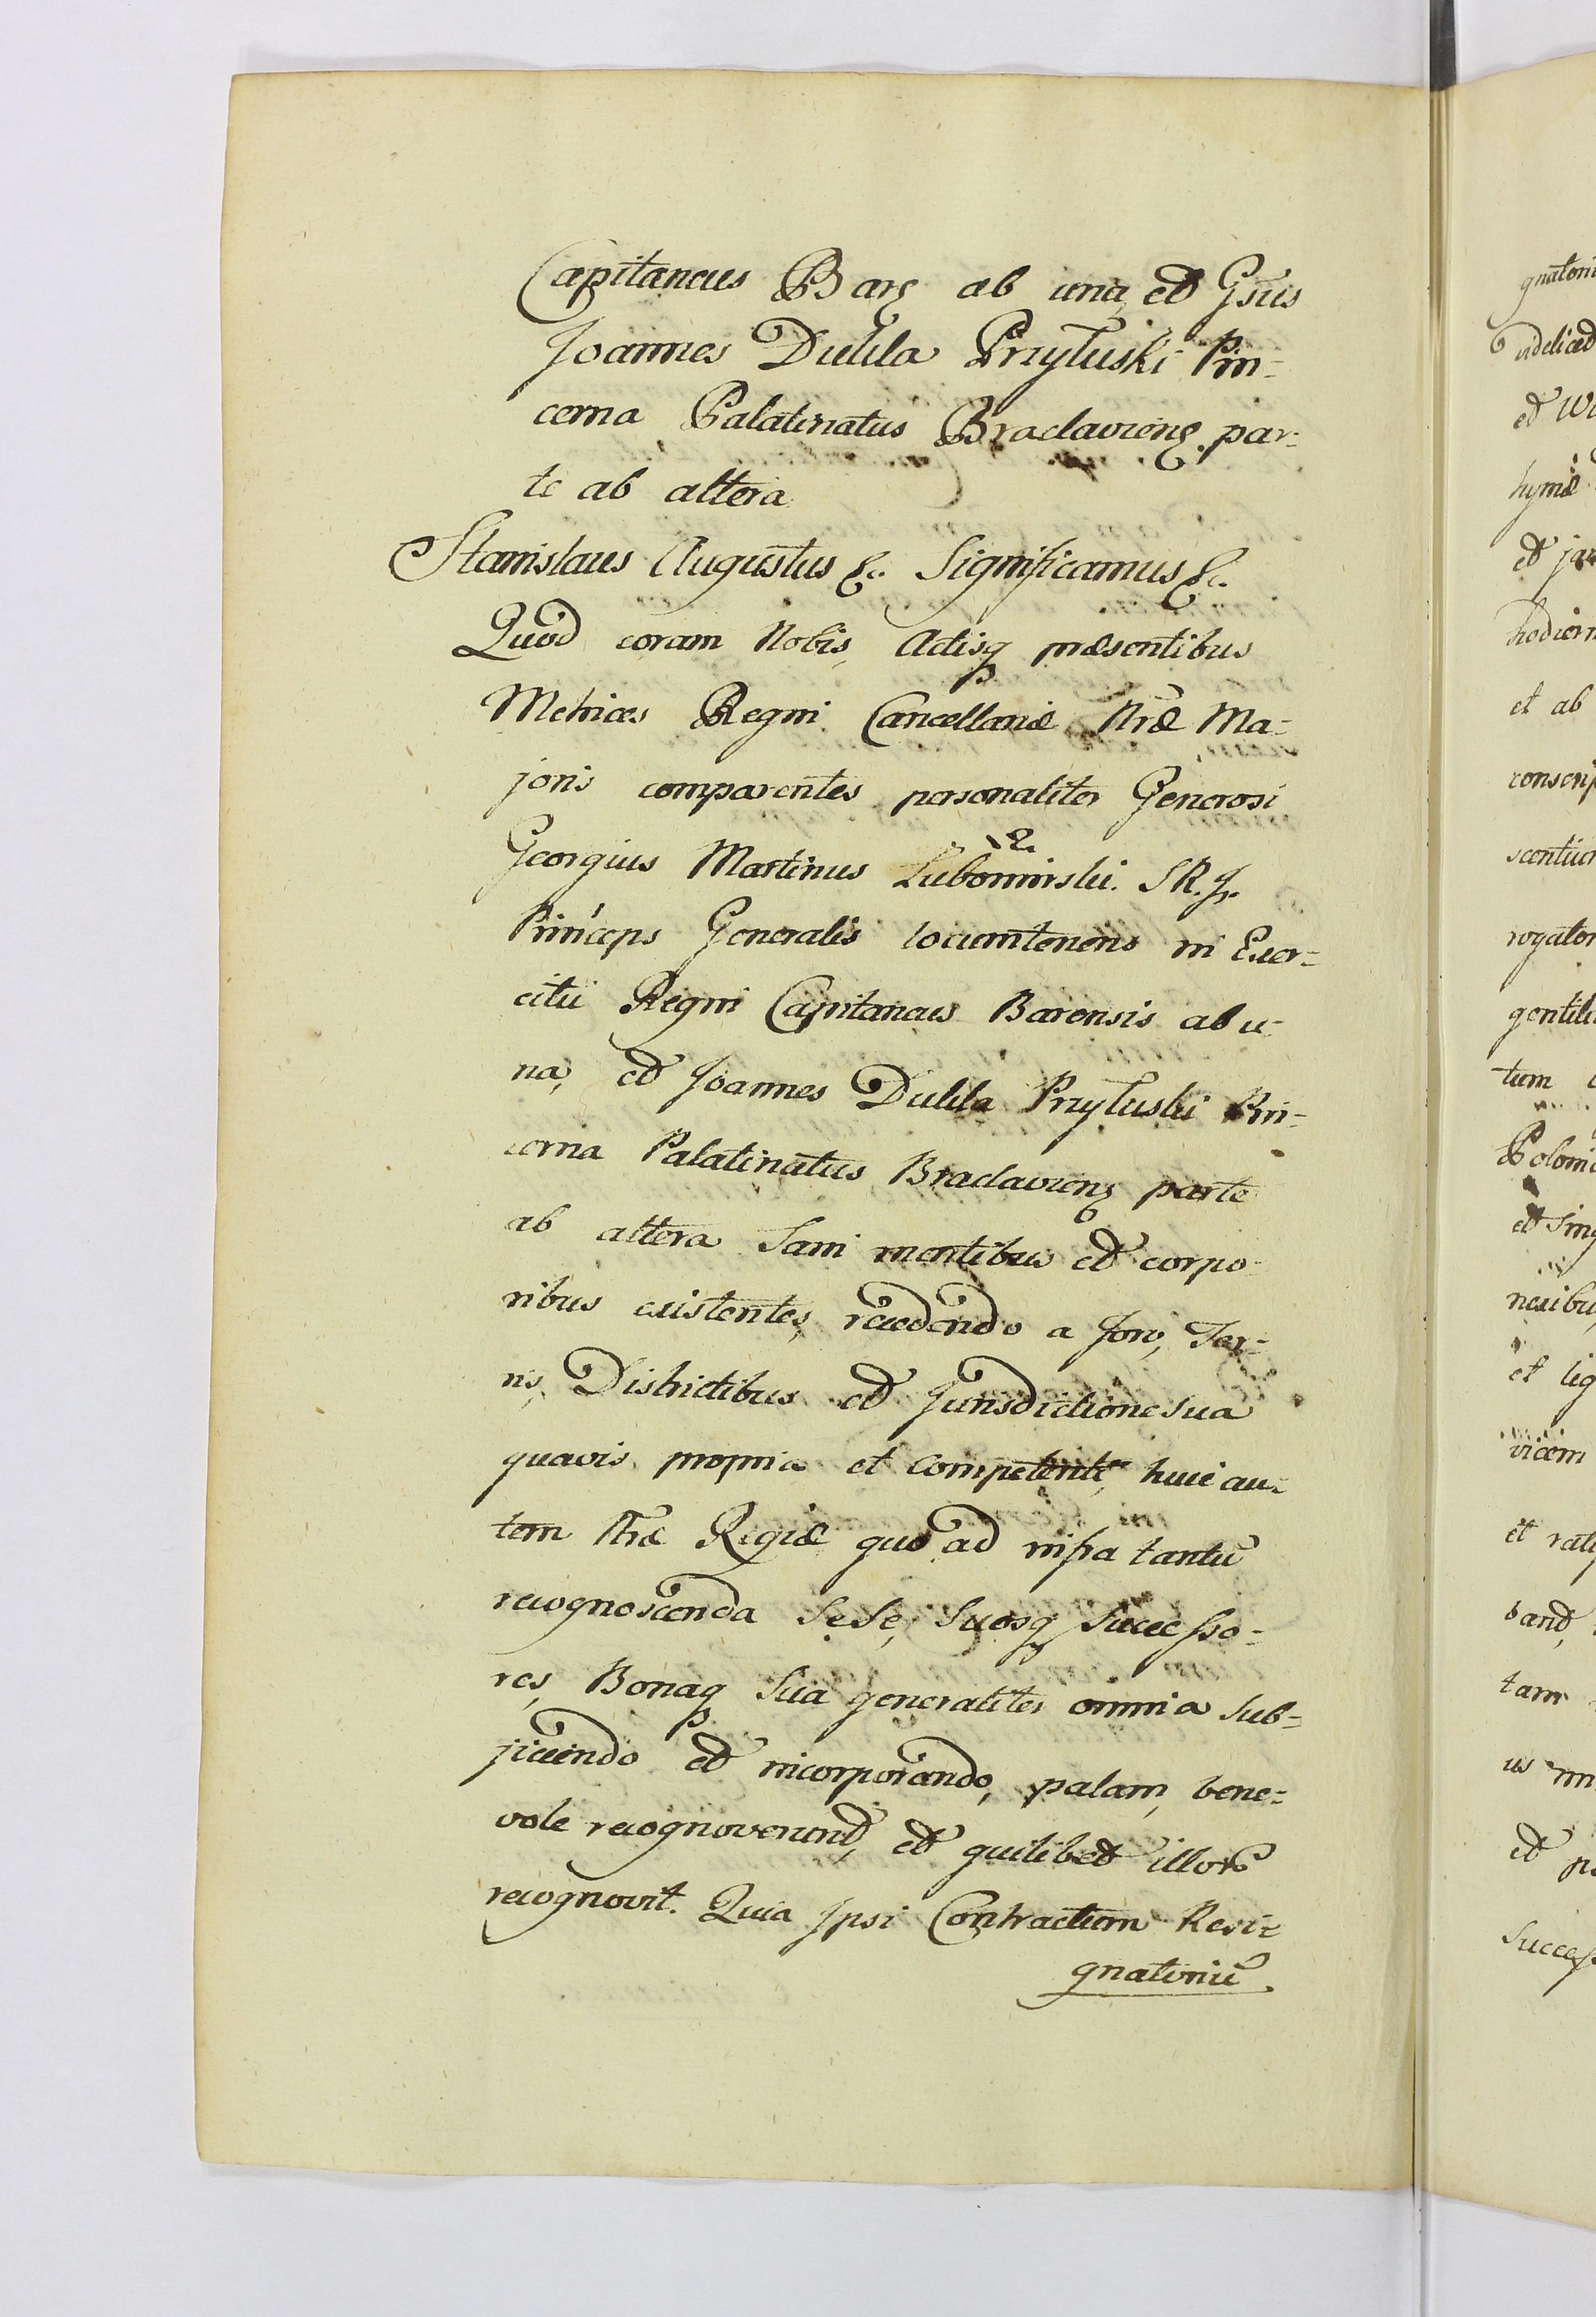 Capitaneus Barg ab una, et Gsus
Joannes Dulila Przyłuski Pin=
cerna Palatinatus Braclavieng. par=
te ab altera
Stanislaus Augustus &c. Significamus &c.
Quod coram Nobis, Actisq præsentibus
Metrices Regni Cancellariæ Nræ Ma=
joris comparentes personaliter Generosi
Georgius Martinus Lubomirski. S.R.J.
Princeps Generalis locumtenens in Exer=
citu Regni Capitaneus Barensis ab u=
na, et Joannes Dulila Przyłuski Pin=
cerna Palatinatus Braclavieng parte
ab altera Sani mentibus et corpo=
ribus existentes, recedendo a foro, Ter=
ris, Districtibus et Jurisdictione sua
quavis propria et Competenti, huic au=
tem Nræ Regiæ quo ad infra tantū
recognoscenda Sese, Suosq Successo=
res, Bonaq Sua generaliter omnia sub=
jiciendo et incorporando, palam, bene=
vole recognoverund, et quilibet illorū
recognovit. Quia Ipsi Contractum Resi=
gnatoriū
gnatori
videliced
et
hymæ
et
hodiern
et ab
conscrip
rogator
gentili
tum
Poloni
et Sing
nexibu
et lig
vicem
et rati
band,
tam
us
et
Success